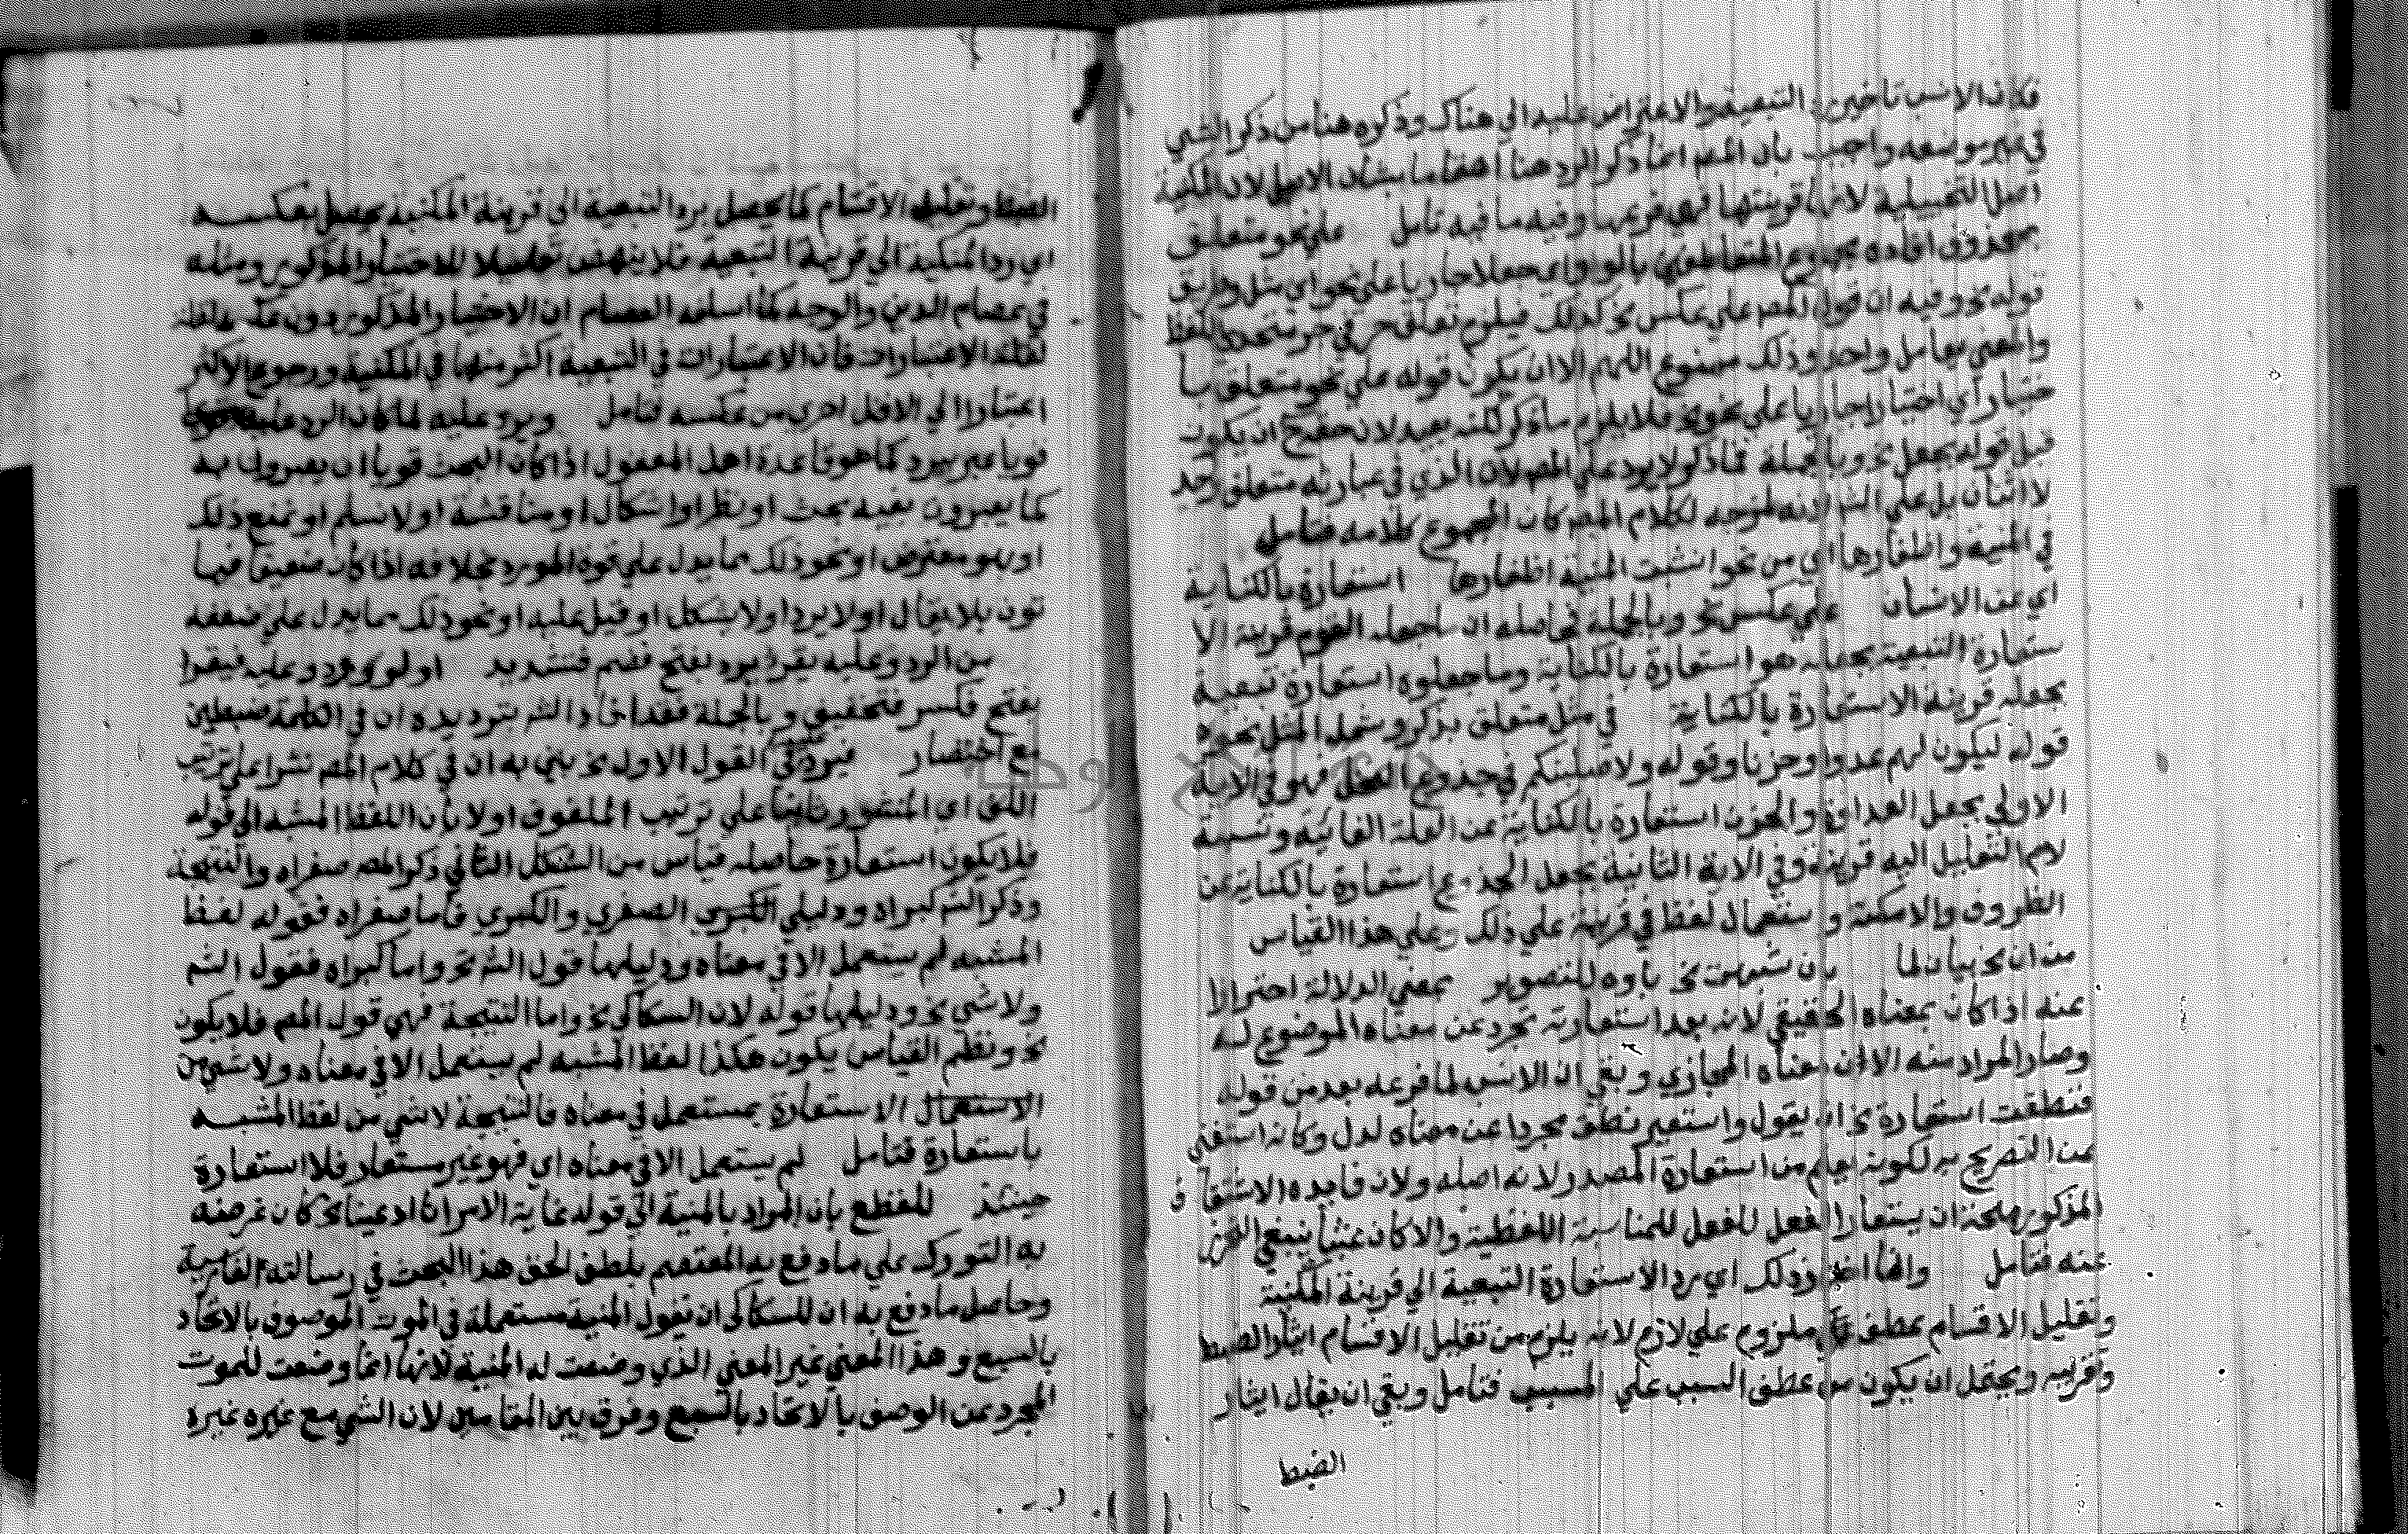 فكان الانسب تاخير التبعية والاعتراض عليه الي هناك وذكره هنا من ذكر الشي
في غير موضعه واجيب بان المص انما ذكر الرد هنا اهتماما بشان الاصل لان المكنية
اصل التخييلية لانها قرينتها فهي فرعها وفيه ما فيه تامل علي نحو متعلق
بمحذوف افاده مجموع المتعاطفين بالواو اي جعلا جاريا علي نحو اي مثل وطريق
قوله نحو وفيه ان قول المص علي عكس نحو كذلك فيلزم تعلق حرفي جر متحدي اللفظ
والمعني بعامل واحد وذلك ممنوع اللهم الا ان يكون قوله علي نحو متعلق با
ختيار اي اختيارا جاريا علي نحو نحو فلا يلزم ما ذكر لكنه بعيد لان حقه ان يكون
قبل قوله بجعل نحو وبالجملة فما ذكر لا يرد علي المص لان الذي في عبارته متعلق واحد
لا اثنان بل علي الش لانه لمزجه لكلام المص كان المجموع كلامه فتامل
في المنية واظفارها اي من نحو انشبت المنية اظفارها استعارة بالكناية
اي عن الانسان علي عكس نحو وبالجملة فحاصله ان ما جعله القوم قرينة الا
ستعارة التبعية بجعله هو استعارة بالكناية وما جعلوه استعارة تبعية
بجعله قرينة الاستعارة بالكناية في مثل متعلق بذكر ويشمل المثل نحو
قوله ليكون لهم عدوا وحزنا وقوله ولاصلبنكم في جذوع النخل فهو في الاية
الاولي بجعل العداوة والحزن استعارة بالكناية عن العلة الغائية ونسبة
لام التعليل اليه قرينة وفي الاية الثانية بجعل الجذوع استعارة بالكناية عن
الظروف والامكنة واستعمال لفظ في قرينة علي ذلك وعلي هذا القياس
من ان نحو بيان لما بان شبهت نحو باوه للتصوير بمعني الدلالة احترازا
عنه اذا كان بمعناه الحقيقي لانه بعد استعارته تجرد عن معناه الموضوع له
وصار المراد منه الان معناه المجازي وبقي ان الانسب لما فرعه بعد من قوله
فنطقت استعارة نحو ان يقول واستعير نطق مجردا عن معناه لدل وكانه استغني
عن التصريح به لكونه يعلم من استعارة المصدر لانه اصله ولان فايدة الاشتقا ق
المذكور صحة ان يستعار الفعل للفعل للمناسبة اللفظية والا كان عبثا ينبغي التحرز
عنه فتامل وانما اختار ذلك اي رد الاستعارة التبعية الي قرينة المكنية
وتقليل الاقسام عطف ملزوم علي لازم لانه يلزم من تقليل الاقسام ايثار الضبط
وتقريبه ويحتمل ان يكون من عطف السبب علي المسبب فتامل وبقي ان يقال ايثار
الضبط
الضبط وتقليل الاقسام كما يحصل برد التبعية الي قرينة المكنية يحصل بعكسه
اي رد المكنية الي قرينة التبعية فلا ينهض تحصيلا للاختيار المذكور ومثله
في عصام الدين والوجه كما اسلمه العصام ان الاختيار المذكور دون عكسه لقلة
لقلة الاعتبارات فان الاعتبارات في التبعية اكثر منها في المكنية ورجوع الاكثر
اعتبارا الي الاقل احري من عكسه فتامل ويرد عليه لما كان الرد عليه
قويا عبر بيرد كما هو قاعدة اهل المعقول اذا كان البحث قويا ان يعبرون به
كما يعبرون بفيه بحث او نظر او اشكال او مناقشة او لا نسلم او نمنع ذلك
او هو معترض او نحو ذلك مما يدل علي قوة المورد بخلافه اذا كان ضعيفا فيا
تون بلا يقال او لا يرد او لا يشكل او قيل عليه او نحو ذلك مما يدل علي ضعفه
من الرد وعليه يقرا يرد بفتح فضم فتشديد او لو ورود وعليه فيقرا
بفتح فكسر فتخفيف وبالجملة فقد افاد الش بترديده ان في الكلمة ضبطين
مع اختصار فيرد في القول الاول نحو يبني به ان في كلام المص نشرا علي ترتيب
اللف اي المنشور ثانيا علي ترتيب الملفوف اولا بان اللفظ المشبه الي قوله
فلا يكون استعارة حاصله قياس من الشكل الثاني ذكر المص صغراه والنتيجة
وذكر الش كبراه ودليلي الكبري الصغري والكبري فاما صغراه فقوله لفظ
المشبه لم يستعمل الا في معناه ودليلها قول الش نحو واما كبراه فقول الش
ولا شي نحو ودليلها قوله لان السكاكي نحو واما النتيجة فهي قول المص فلا يكون
نحو ونظم القياس يكون هكذا لفظ المشبه لم يستعمل الا في معناه ولا شي من
الاستعمال الاستعارة بمستعمل في معناه فالنتيجة لا شي من لفظ المشبه
باستعارة فتامل لم يستعمل الا في معناه اي فهو غير مستعار فلا استعارة
حينئذ للقطع بان المراد بالمنية الي قوله غاية الامر انا ادعينا نحو كان غرضه
به التورك علي ما دفع به المعتصم بلطف الحق هذا البحث في رسالته الفارسية
وحاصل ما دفع به ان للسكاكي ان يقول المنية مستعملة في الموت الموصوف بالاتحاد
بالسبع وهذا المعني غير المعني الذي وضعت له المنية لانها انما وضعت للموت
المجرد عن الوصف بالاتحاد بالسبع وفرق بين المقامين لان الشي مع غيره غيره